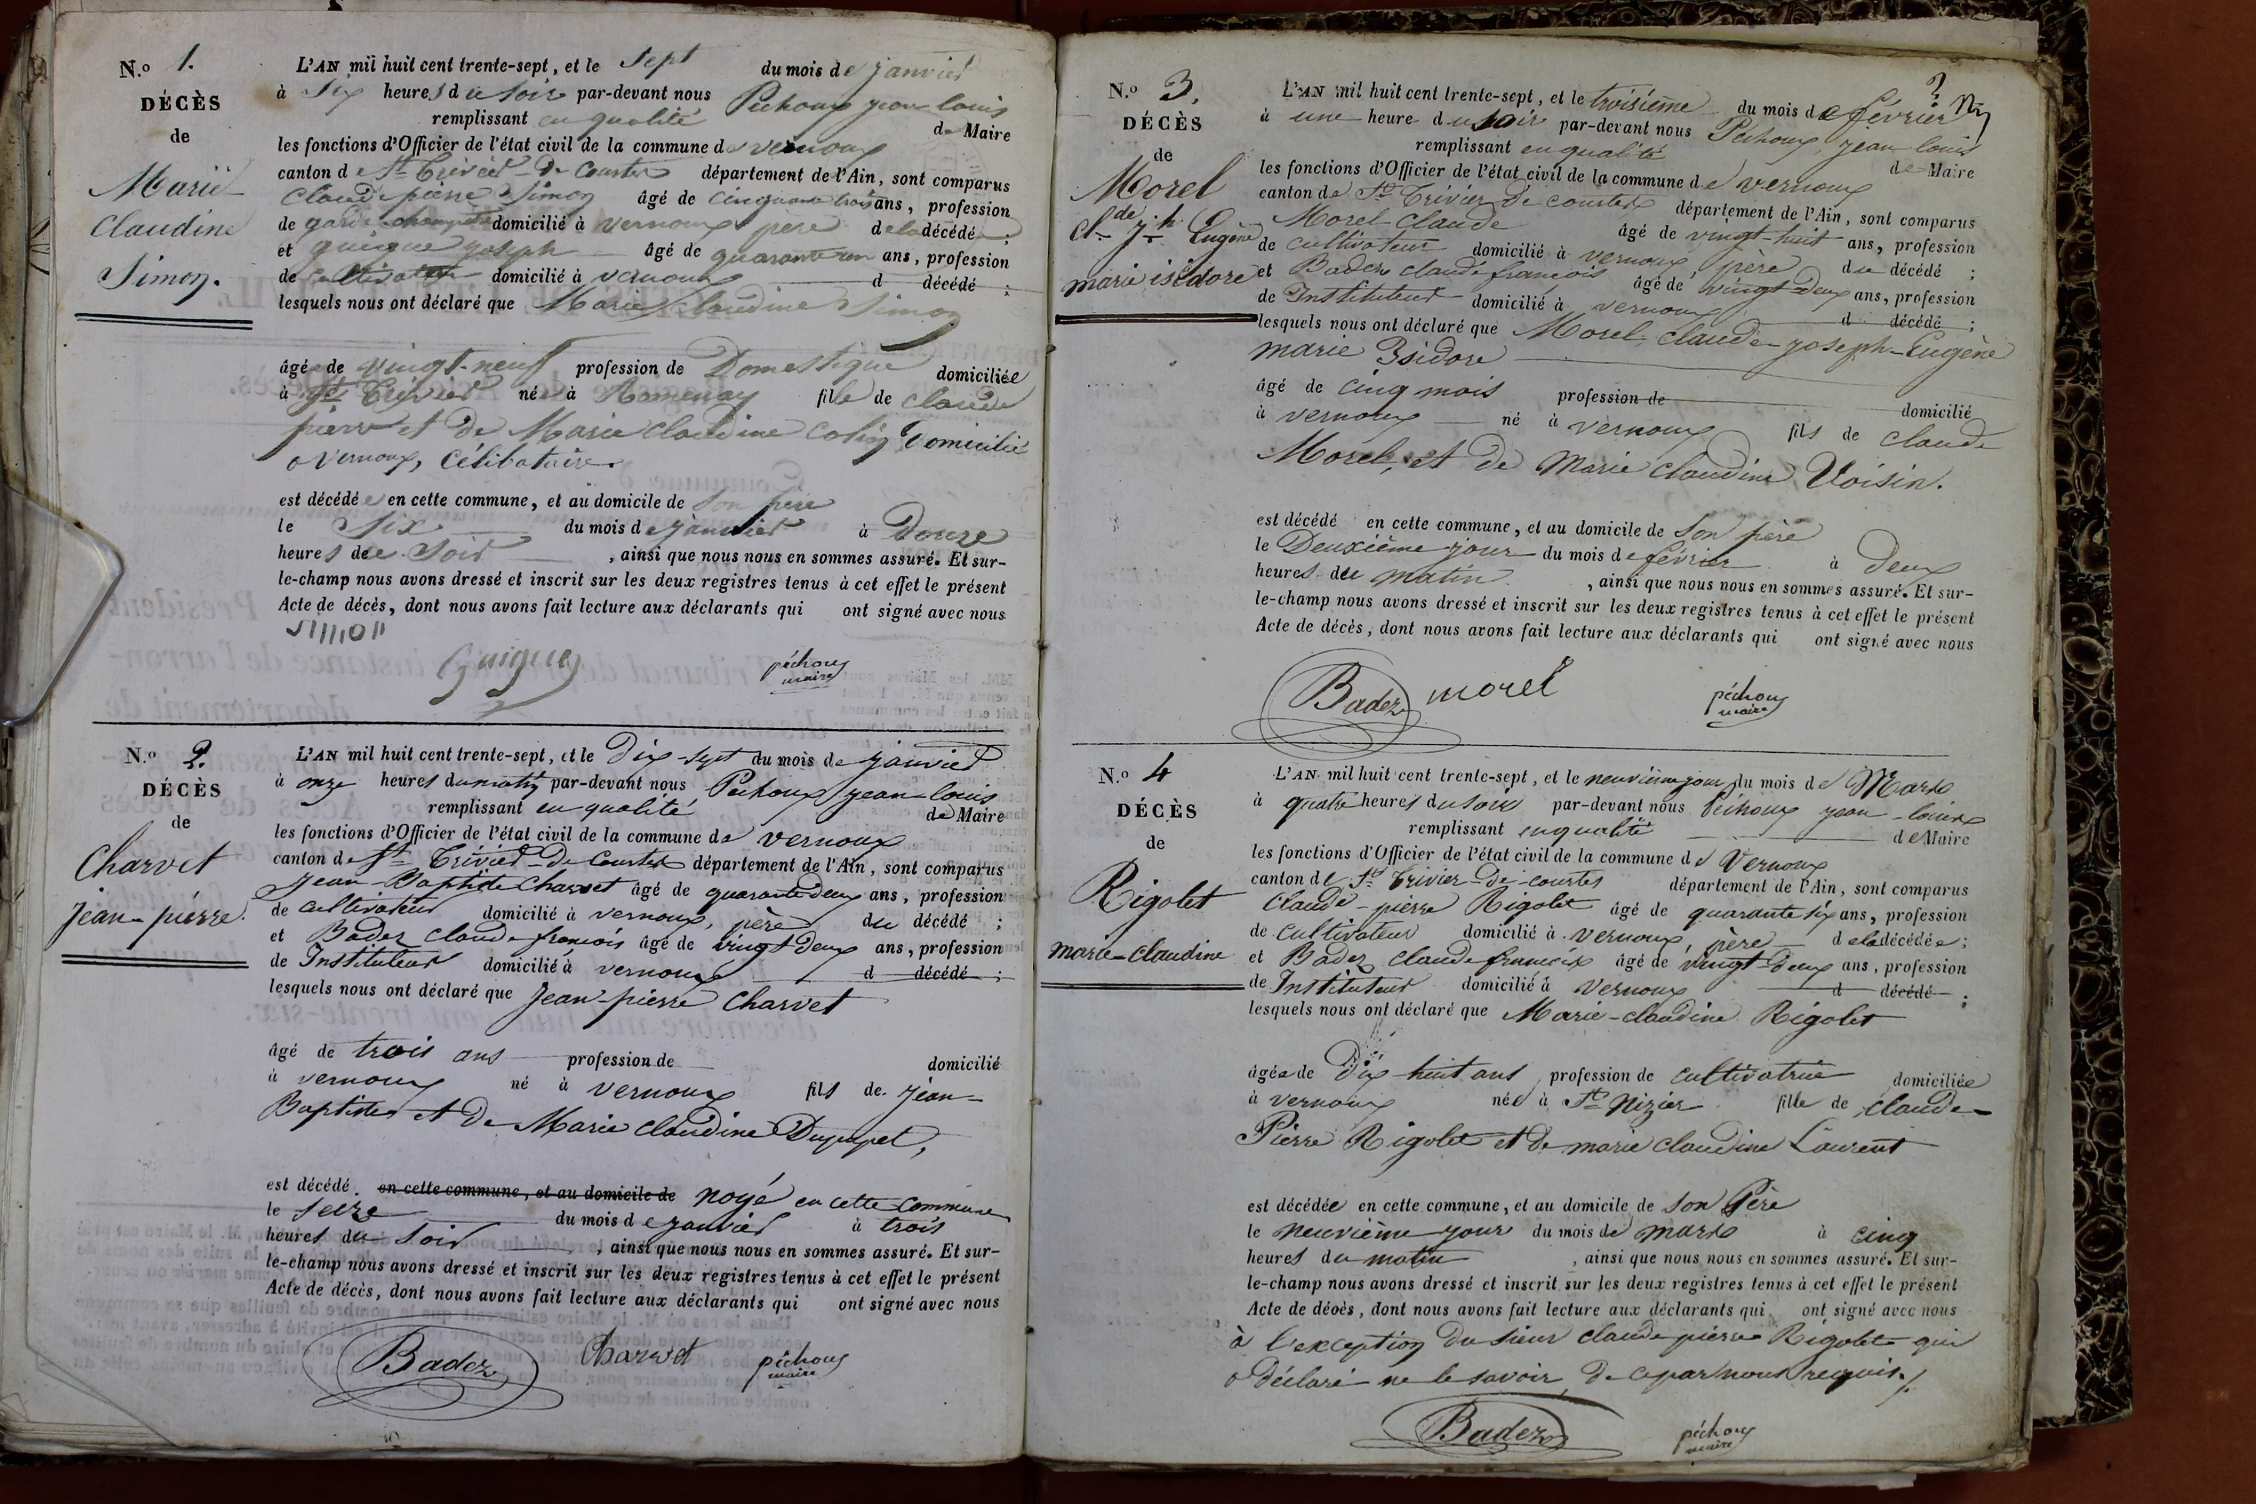 N.o 1.
DÉCÈS
de
Marie
Claudine
Simon.
L'AN mil huit cent trente-sept, et le Sept du mois de janvier
à Six heures du soir par-devant nous Péchoux jean louis
remplissant en qualité de Maire
les fonctions d'Officier de l'état civil de la commune de vernoux
canton de St Trivier-De Courtes département de l'Ain, sont comparus
Claude pierre Simon âgé de cinquante trois ans, profession
de garde champêtre domicilié à vernoux père de la décédée ;
et guigue joseph âgé de quarante un ans, profession
de cultivateur domicilié à vernoux d décédé ;
lesquels nous ont déclaré que Marie Claudine Simon
âgée de vingt-neuf profession de Domestique domiciliée
à St Trivier née à Romenay fille de claude
pierre et de Marie claudine Colin Domicilié
a vernoux, Célibataire.
est décédée en cette commune, et au domicile de son père
le Six du mois de janvier à Douze
heures du Soir , ainsi que nous nous en sommes assuré. Et sur-
le-champ nous avons dressé et inscrit sur les deux registres tenus à cet effet le présent
Acte de décès, dont nous avons fait lecture aux déclarants qui ont signé avec nous
simon
Guigue
péchoux
maire
N.o 2.
DÉCÈS
de
Charvet
jean-pierre.
L'AN mil huit cent trente-sept, et le Dix-sept du mois de janvier
à onze heures du matin par-devant nous Péchoux jean louis
remplissant en qualité de Maire
les fonctions d'Officier de l'état civil de la commune de vernoux
canton de St Trivier-De Courtes département de l'Ain, sont comparus
Jean-Baptiste Charvet âgé de quarante deux ans, profession
de cultivateur domicilié à vernoux, père du décédé ;
et Badez claude françois âgé de vingt deux ans, profession
de Instituteur domicilié à vernoux d décédé ;
lesquels nous ont déclaré que Jean-pierre Charvet
âgé de trois ans profession de domicilié
à vernoux né à vernoux fils de jean-
Baptiste et de Marie claudine Dupupet,
est décédé en cette commune, et au domicile de noyé en cette commune
le seize du mois de janvier à trois
heures du soir , ainsi que nous nous en sommes assuré. Et sur-
le-champ nous avons dressé et inscrit sur les deux registres tenus à cet effet le présent
Acte de décès, dont nous avons fait lecture aux déclarants qui ont signé avec nous
Badez
Charvet
péchoux
maire
2
N.o 3.
DÉCÈS
de
Morel
Cl.de j.ph Eugène
marie isidore
L'AN mil huit cent trente-sept, et le troisième du mois de février
à une heure du soir par-devant nous Péchoux jean louis
remplissant en qualité de Maire
les fonctions d'Officier de l'état civil de la commune de vernoux
canton de St Trivier De courtes département de l'Ain, sont comparus
Morel Claude âgé de vingt-huit ans, profession
de cultivateur domicilié à vernoux, père du décédé ;
et Badez claude françois âgé de vingt-deux ans, profession
de Instituteur domicilié à vernoux d décédé ;
lesquels nous ont déclaré que Morel, claude-joseph-Eugène
marie Isidore
âgé de cinq mois profession de domicilié
à vernoux né à vernoux fils de claude
Morel, et de Marie claudine Voisin.
est décédé en cette commune, et au domicile de son père
le Deuxième jour du mois de février à deux
heures du matin , ainsi que nous nous en sommes assuré. Et sur-
le-champ nous avons dressé et inscrit sur les deux registres tenus à cet effet le présent
Acte de décès, dont nous avons fait lecture aux déclarants qui ont signé avec nous
Badez
morel
péchoux
maire
N.o 4
DÉCÈS
de
Rigolet
marie-claudine
L'AN mil huit cent trente-sept, et le neuvième jour du mois de Mars
à quatre heures du soir par-devant nous Péchoux jean-louis
remplissant en qualité de Maire
les fonctions d'Officier de l'état civil de la commune de Vernoux
canton de St Trivier-De-courtes département de l'Ain, sont comparus
Claude-pierre Rigolet âgé de quarante six ans, profession
de Cultivateur domicilié à vernoux, père de la décédée ;
et Badez claude francois âgé de vingt-deux ans, profession
de Instituteur domicilié à Vernoux d décédé ;
lesquels nous ont déclaré que Marie-claudine Rigolet
âgée de Dix-huit ans profession de cultivatrice domiciliée
à vernoux née à St Nizier fille de claude-
Pierre Rigolet et de marie claudine Laurent
est décédée en cette commune, et au domicile de son Père
le neuvième jour du mois de mars à cinq
heures du matin , ainsi que nous nous en sommes assuré. Et sur-
le-champ nous avons dressé et inscrit sur les deux registres tenus à cet effet le présent
Acte de décès, dont nous avons fait lecture aux déclarants qui ont signé avec nous
à l'exception du sieur claude pierre Rigolet qui
a déclaré ne le savoir de ce par nous requis./.
Badez
péchoux
maire